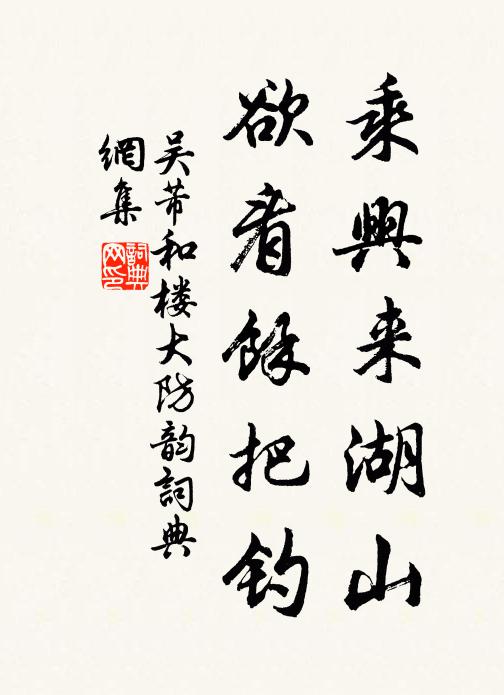 乘興来湖山
欲看餘把钓
吴芾和楼大防韵詞典
網集
詞典
网印